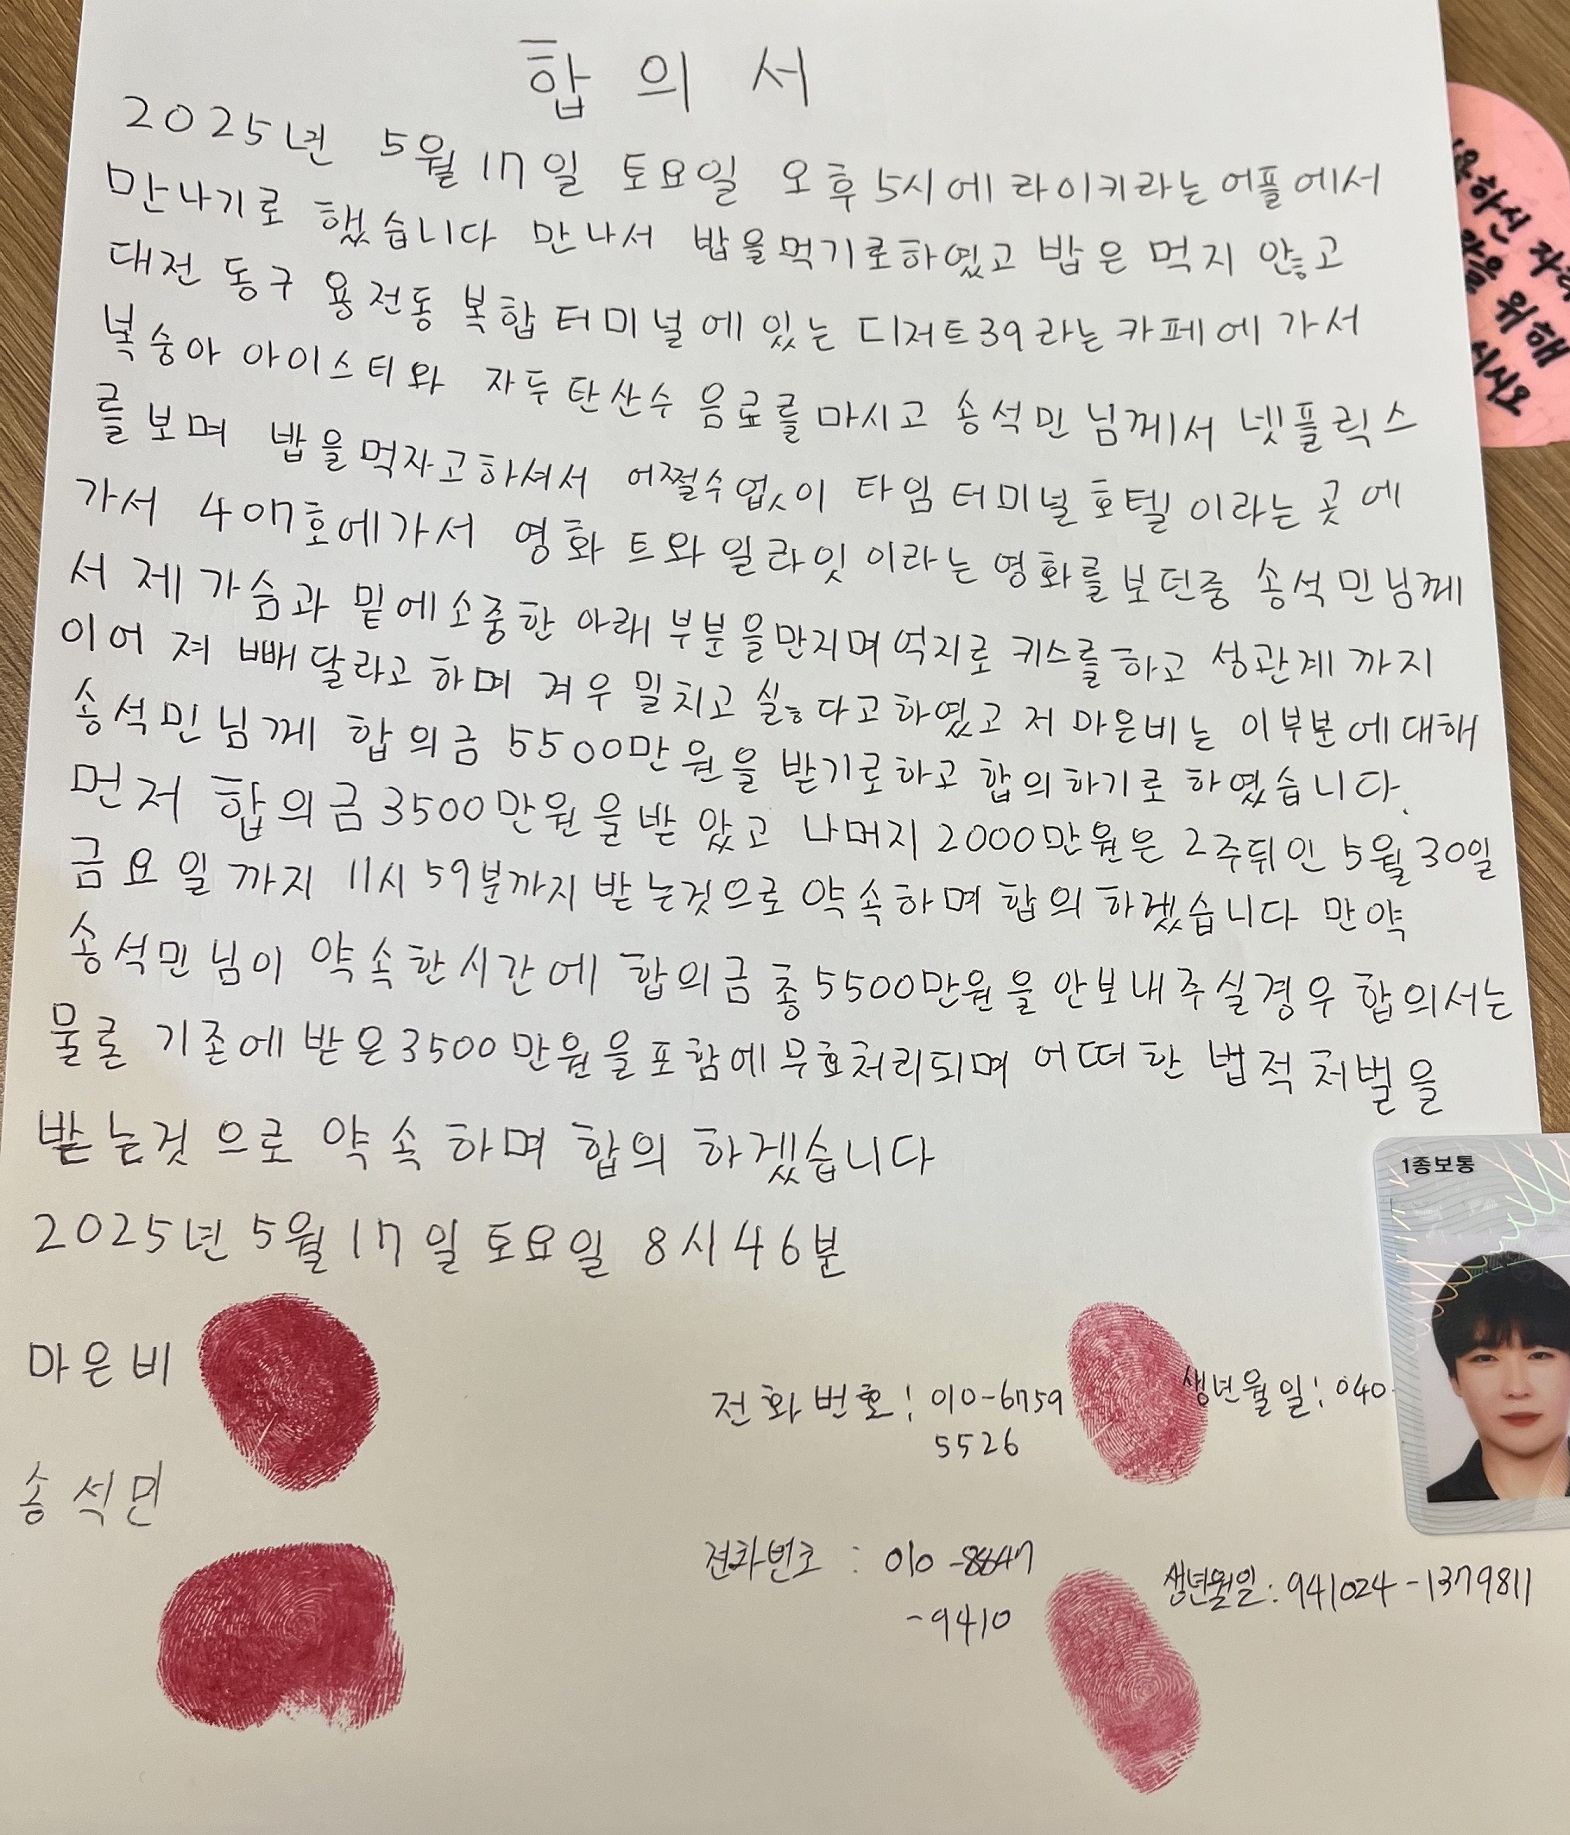 합 의 서
2025년 5월 17일 토요일 오후 5시에 라이키라는 어플에서
만나기로 했습니다 만나서 밥을먹기로하였고 밥은 먹지 않고
대전 동구 용전동 복합터미널에 있는 디저트39라는 카페에 가서
복숭아 아이스티와 자두탄산수 음료를 마시고 송석민님께서 넷플릭스
를 보며 밥을먹자고하셔서 어쩔수없이 타임 터미널 호텔이라는 곳에
가서 407호에가서 영화 트와일라잇 이라는 영화를 보던중 송석민님께
서 제 가슴과 밑에소중한 아래 부분을만지며 억지로 키스를 하고 성관계 까지
이어 져 빼달라고 하며 겨우 밀치고 싫다고하였고 저 마은비는 이부분에대해
송석민님께 합의금 5500만원을 받기로하고 합의하기로 하였습니다.
먼저 합의금3500만원을받았고 나머지 2000만원은 2주뒤인 5월30일
금요일 까지 11시59분까지 받는것으로 약속하며 합의 하겠습니다 만약
송석민님이 약속한시간에 합의금 총5500만원을 안보내주실경우 합의서는
물론 기존에 받은3500만원을포함에무효처리되며 어떠한 법적처벌을
받는것으로 약속하며 합의 하겠습니다
2025년 5월 17일 토요일 8시46분
마은비
전화번호: 010-6759
5526
생년월일: 040
송석민
전화번호 : 010-8647
-9410
생년월일: 941024-1379811
1종보통
하신 자리
을 위해
시오